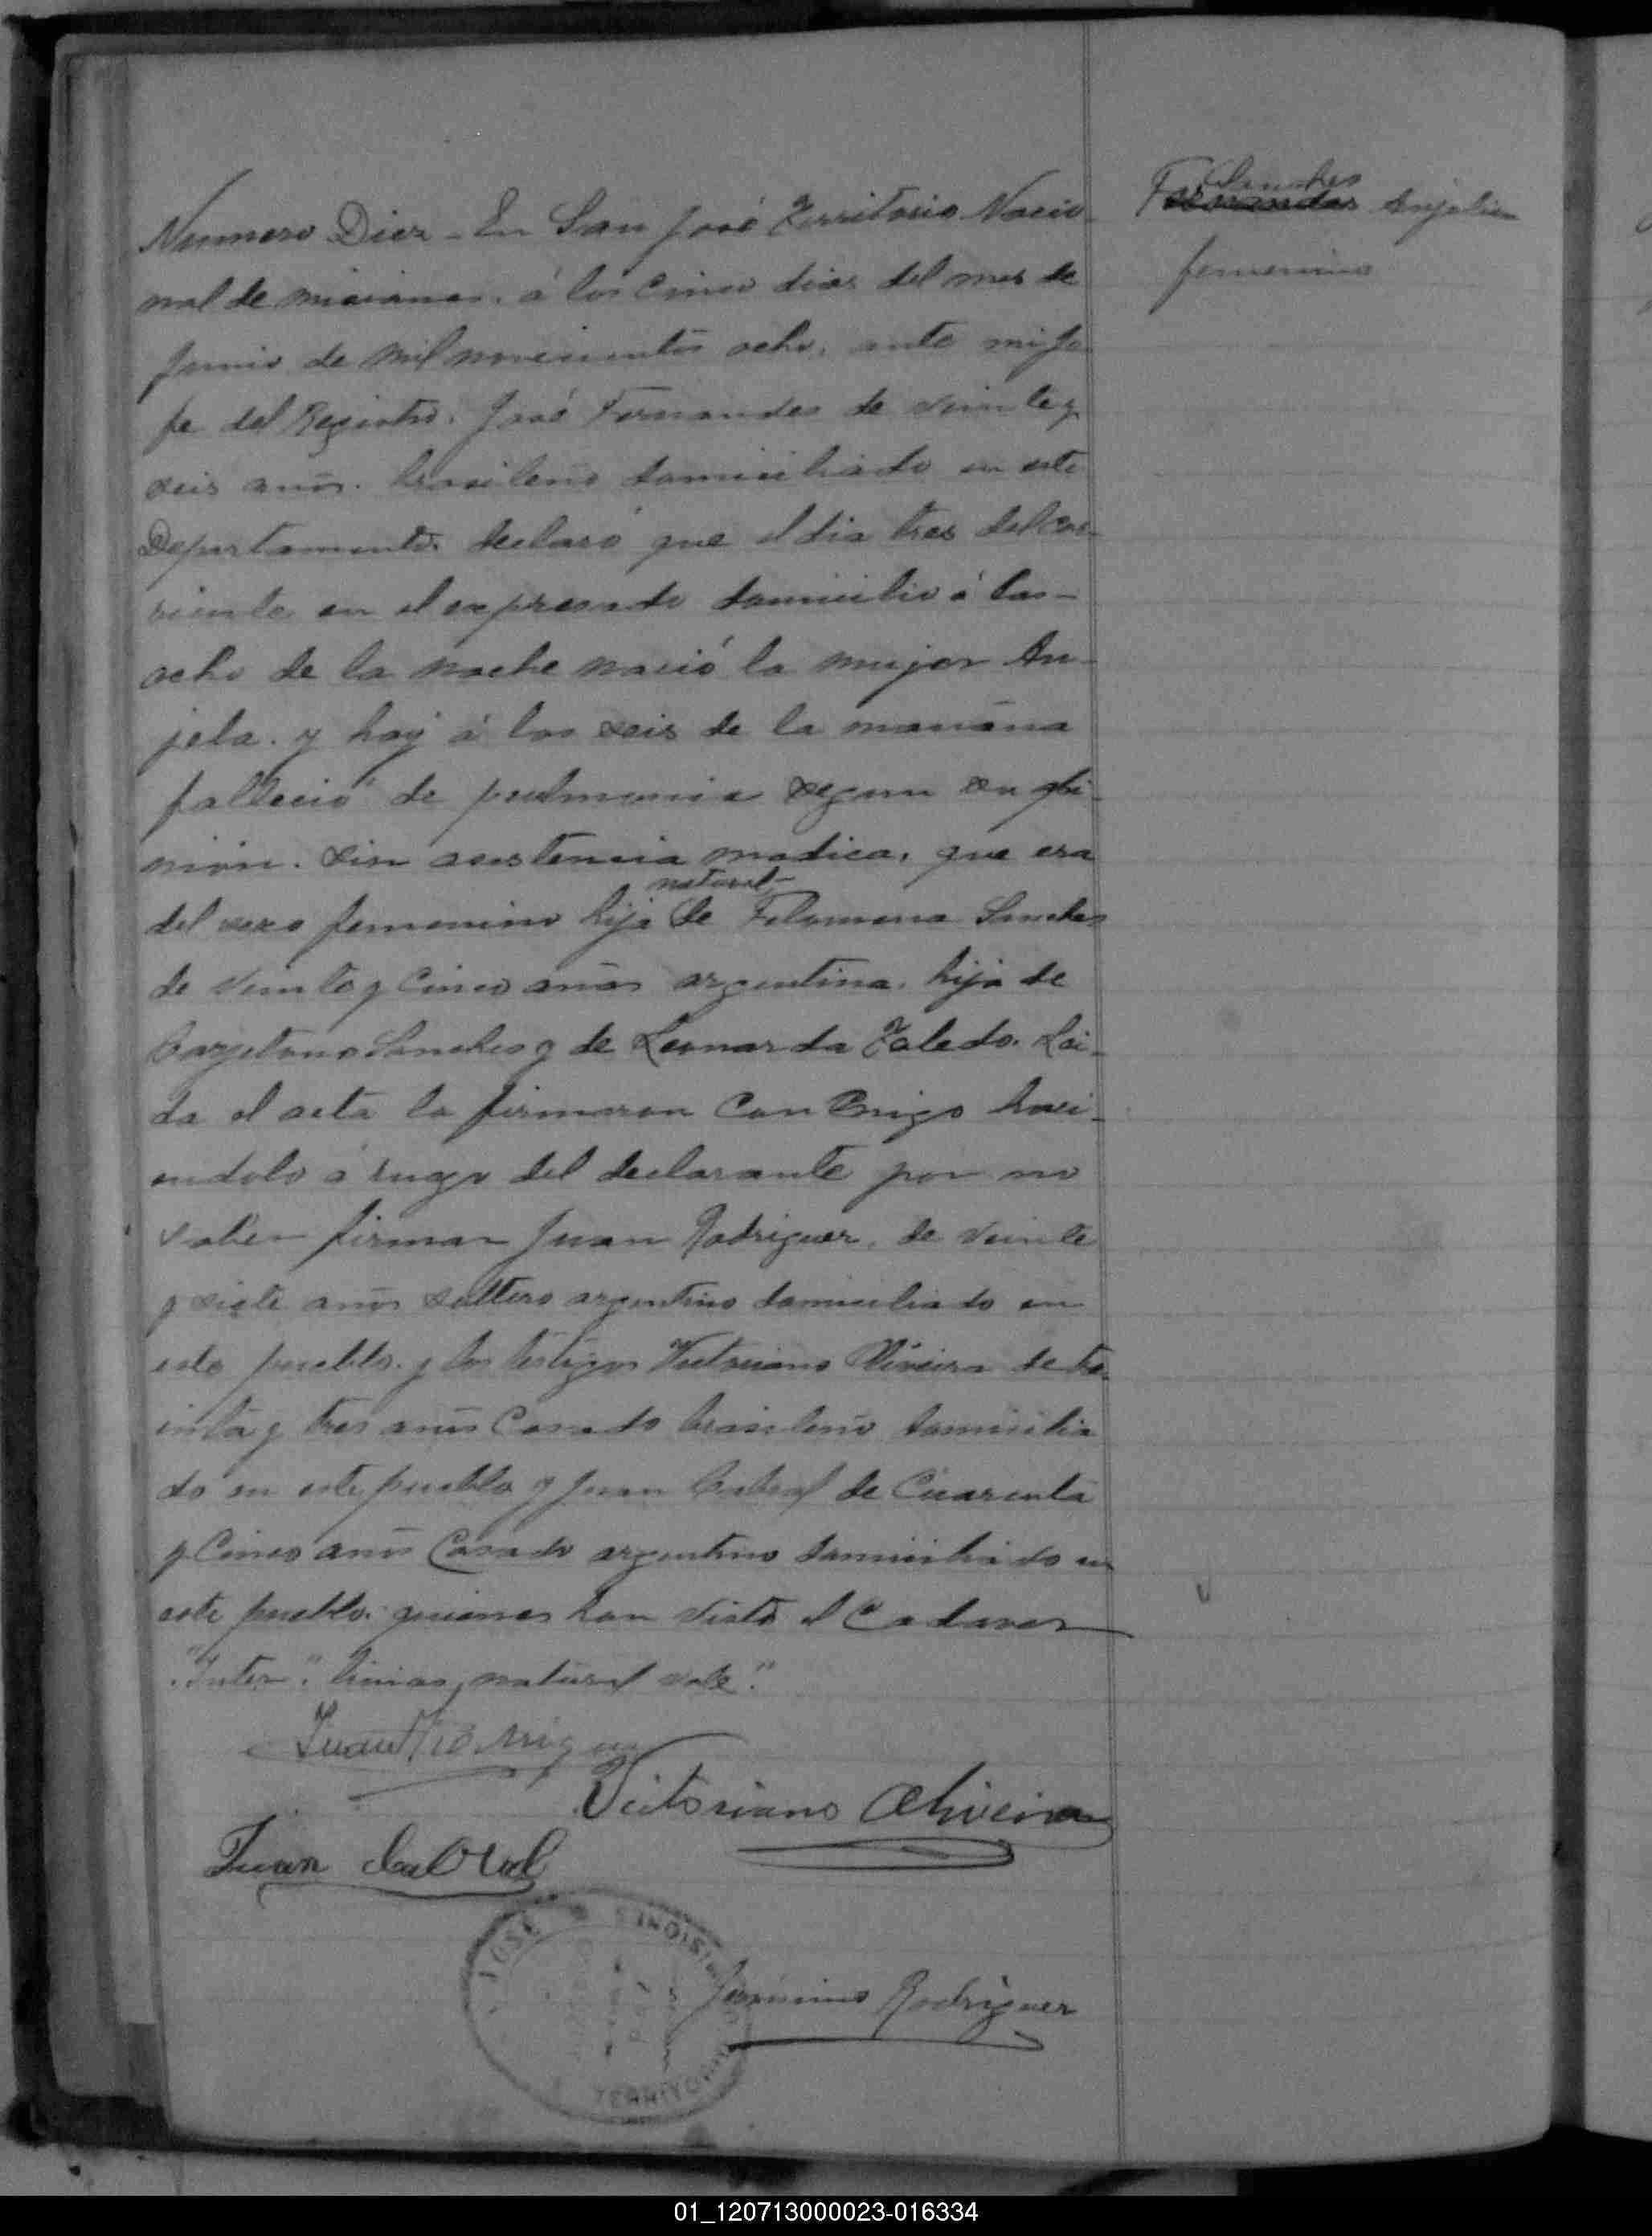 Numero Diez - En San José Territorio Nacio-
nal de misiones, á los Cinco dias del mes de
Junio de mil novecientos ocho, ante mi Je-
fe del Registro. José Fernandes de veinte y
seis años. brasileño domiciliado en este
Departamento declaró que el dia tres del cor-
riente en el expresado domicilio á las -
ocho de la noche nació la mujer An-
jela. y hoy á las seis de la mañana
falleció de pulmonia segun su opi-
nion. sin asistencia medica, que era
natural -
del sexo femenino hija de Filomena Sanches
de veinte y Cinco años argentina, hija de
Sanches y de Leonarda Toledo. Lei-
da el acta la firmaron Con migo haci-
endolo á ruego del declarante por no
saber firmar Juan Rodriguez, de veinte
y siete años soltero argentino domiciliado en
este pueblo. y los testigos Victoriano Oliveira de tre-
inta y tres años Casado brasileño domicilia
do en este pueblo y Juan Cabral de Cuarenta
y Cinco años Casado argentino domiciliado en
este pueblo. quienes han visto el Cadaver
"Inter" linias, natural vale."
Juan Rodriguez
Victoriano Oliveira
Juan Cabral
Rodriguez
Sanches
Fernandes Anjelica
femenino
JOSE MISIONES
TERRITORIO
01_120713000023-016334